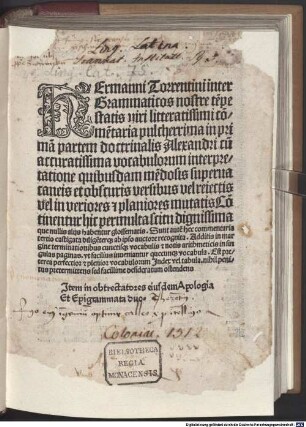 Ling. Latina.
Grammat. Institut. 95.
Ling. Lat. 75.
HErmanni Torrentini inter
Grammaticos nostre tēpe
statis viri litteratissimi cō-
mētaria pulcherrima in pri
mā partem doctrinalis Alexandri cū
accuratissima vocabulorum interpre-
tatione quibusdam mēdosis superua
caneis et obscuris versibus vel reiectis
vel in veriores & planiores mutatis Cō
tinentur hic permulta scitu dignissima
que nullis aliis habentur glosematis. Sunt autē hec commentaria
tertio castigata diligēterq; ab ipso auctore recognita. Additis in mar
gine terminationibus cunctisq; vocabulis & notis arithmeticis in sin
gulas paginas. vt facilius inueniantur quecunq; vocabula. Est pre-
terea perfectior & plenior vocabulorum Index vel tabula. nihil peni-
tus pretermittens sed facillime desideratum ostendens
Item in obtrectatores eiusdem Apologia
Et Epigrammata duo
Coloniae. 1512
BIBLIOTHECA
REGIA
MONACENSIS